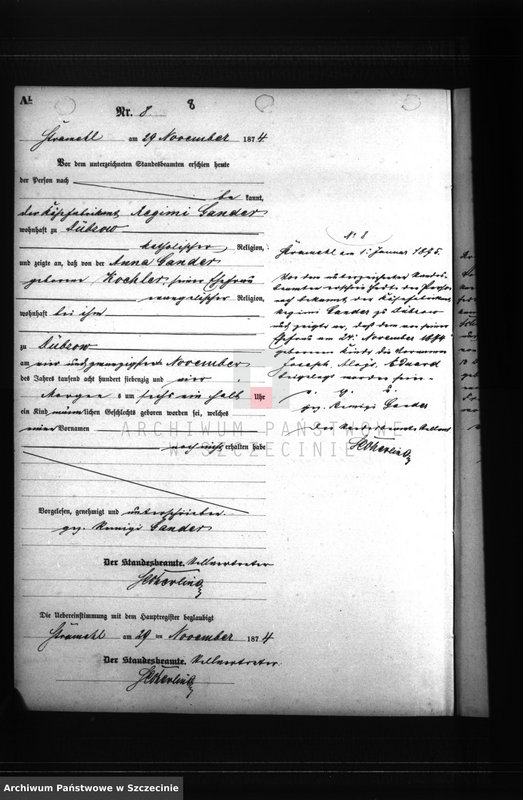 A1.
Nr. 8
8
Stramehl am 29 November 1874
Vor dem unterzeichneten Standesbeamten erschien heute
der Person nach
be kannt,
der Käsefabrikant Regimi Gander
wohnhaft zu Dübzow
katholischer Religion,
und zeigte an, daß von der Anna Gander
geborenen Koehler, seiner Ehefrau
evangelischer Religion,
wohnhaft bei ihm
zu Dübzow
am vier und zwanzigsten November
des Jahres tausend acht hundert siebenzig und vier,
Morgens um sechs ein halb Uhr
ein Kind männlichen Geschlechts geboren worden sei, welches
einen Vornamen
noch nicht erhalten habe
Vorgelesen, genehmigt und unterschrieben
gez. Remigi Gander
Der Standesbeamte. Stellvertreter
Die Uebereinstimmung mit dem Hauptregister beglaubigt
Stramehl am 29 ten November 1874
Der Standesbeamte. Stellvertreter
No 8
Stramehl am 1. Januar 1875.
Vor dem unterzeichneten Standes-
beamten erschien heute, der Person
nach bekannt, der Käsefabrikant
Regimi Gander zu Dübzow
und zeigte an, daß dem von seiner
Ehefrau am 24. November 1874
geborenen Kinde die Vornamen
Joseph, Alojs, Eduard
beigelegt worden seien
v. g. u.
gez. Remigi Gander
Der Standesbeamte. Stellvert
ARCHIWUM PAŃSTWOWE
W SZCZECINIE
Archiwum Państwowe w Szczecinie